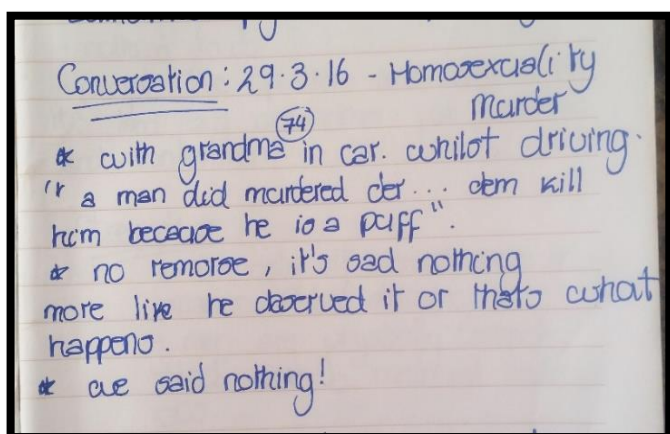 Conversation : 29.3.16 - Homosexuality
murder
* with grandma (74) in car. whilst driving.
"r a man did murdered der... dem kill
him because he is a puff".
* no remorse, it's sad nothing
more like he deserved it or thats what
happens.
* we said nothing!